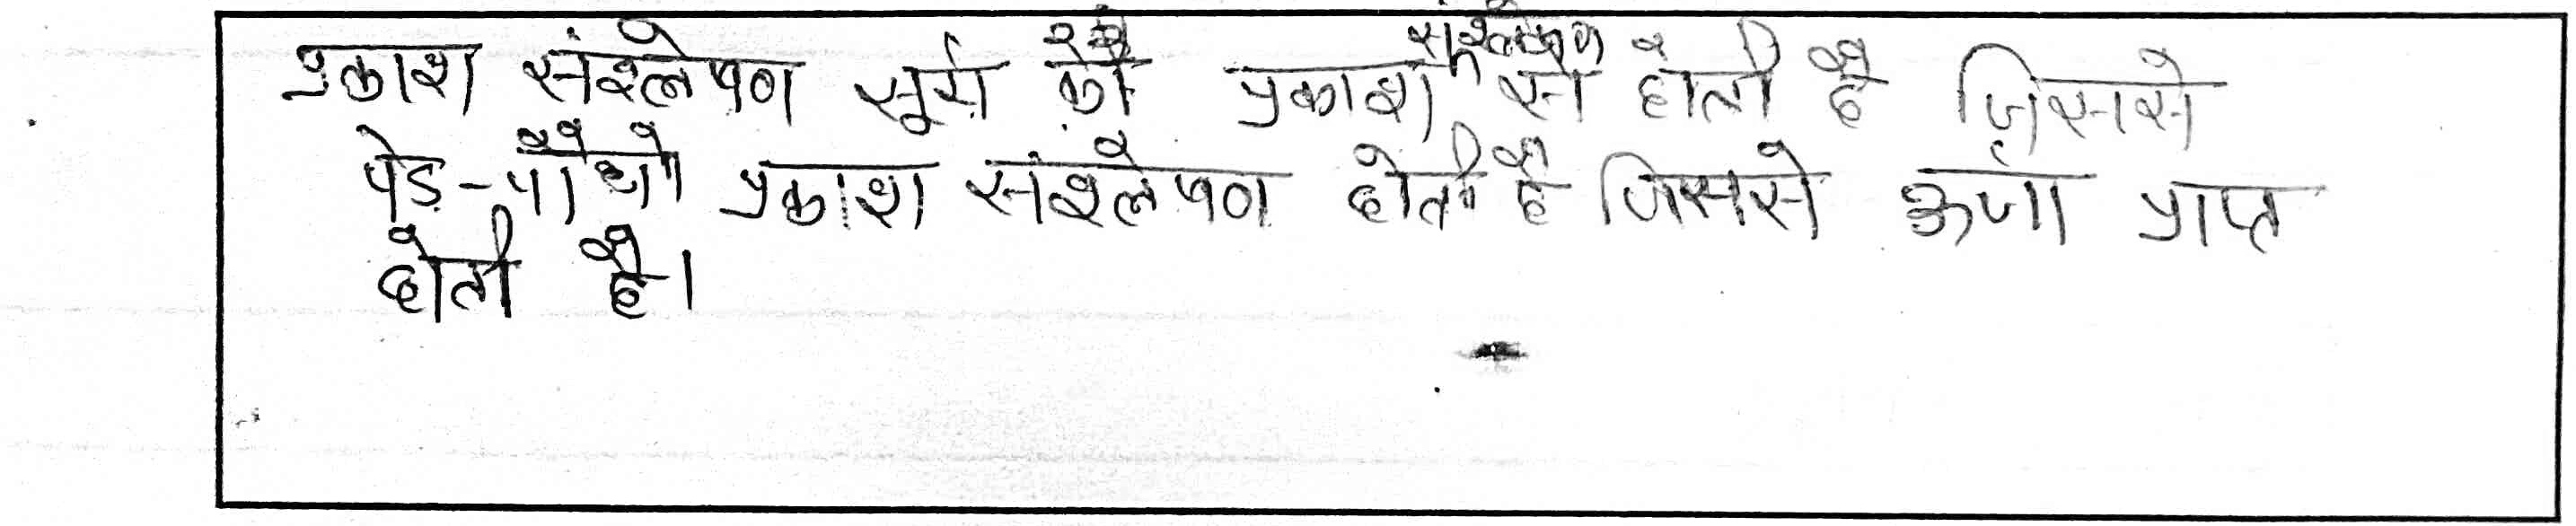 प्रकाश संश्लेषण सूर्य की प्रकाश संश्लेषण से होती है जिससे
पेड़-पौधो प्रकाश संश्लेषण होती है जिससे ऊर्जा प्राप्त
होती है।